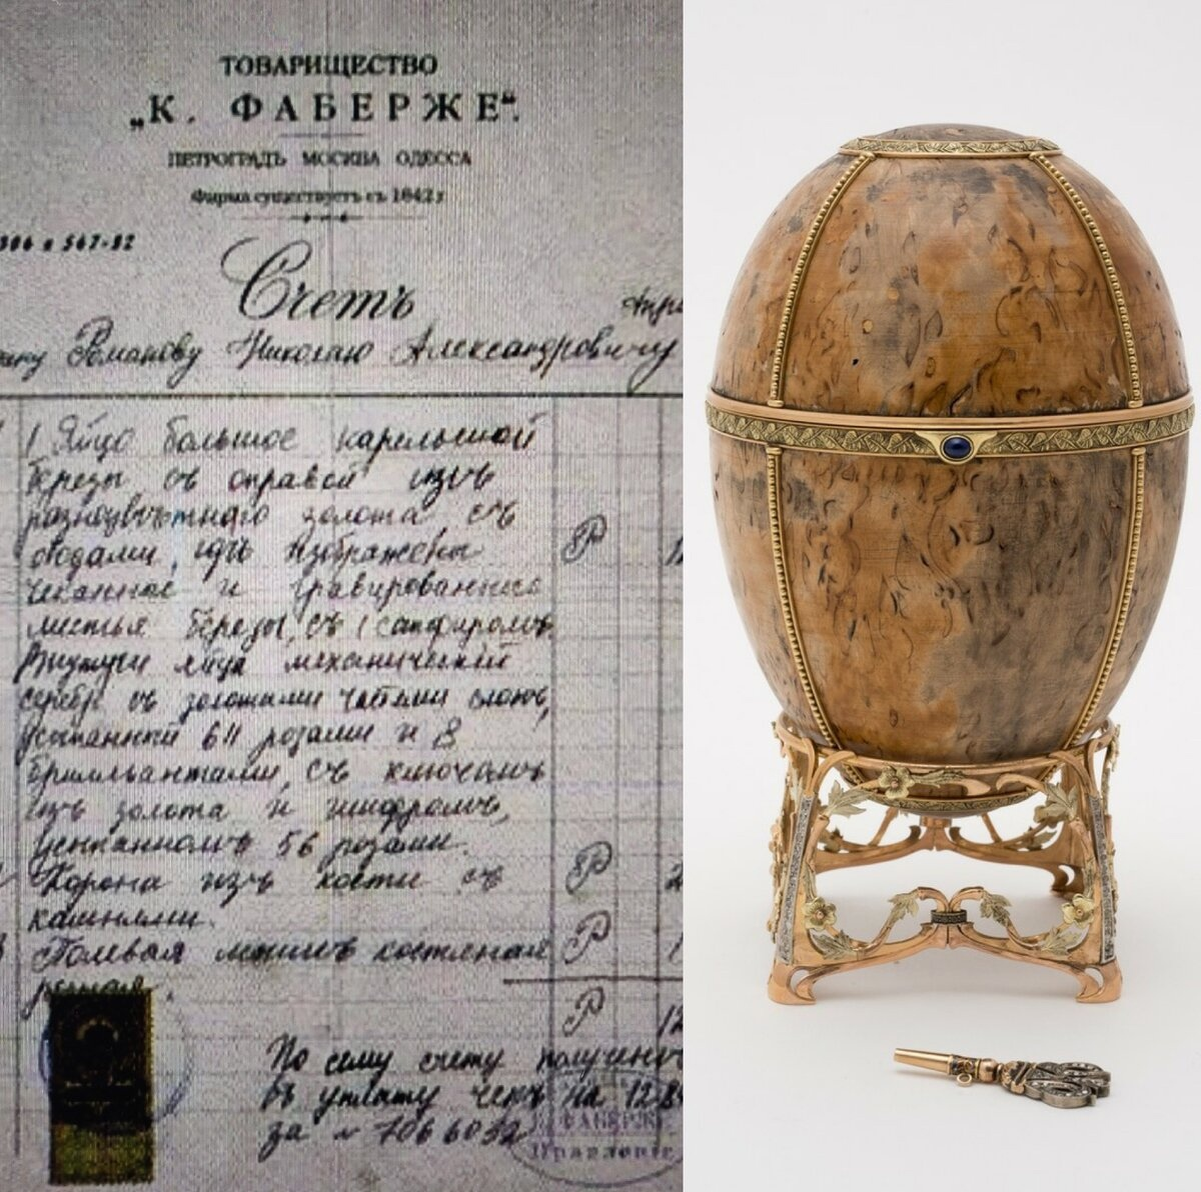 ТОВАРИЩЕСТВО
„К. ФАБЕРЖЕ“.
ПЕТРОГРАДЪ МОСКВА ОДЕССА
Фирма существуетъ съ 1842 г
306 и 567-82
Счетъ
Романову Николаю Александровичу
1 Яйцо большое карельской
березы съ оправой изъ
разноцвѣтнаго золота, съ
ободами, гдѣ изображены
чеканное и гравированные
листья березы, съ 1 сапфиромъ.
Внутри яйца механический
серебр съ золотыми частями слонъ,
усыпанный 611 розами и 8
бриллiантами, съ ключомъ
изъ золота и шифромъ,
усыпанномъ 56 розами.
Р
Корона изъ кости съ
камнями.
Р 2
костеная
Р 1
Р 12
По сему счету получено
въ уплату чекъ на
за № 706 6032
ФАБЕРЖЕ
Правленiе